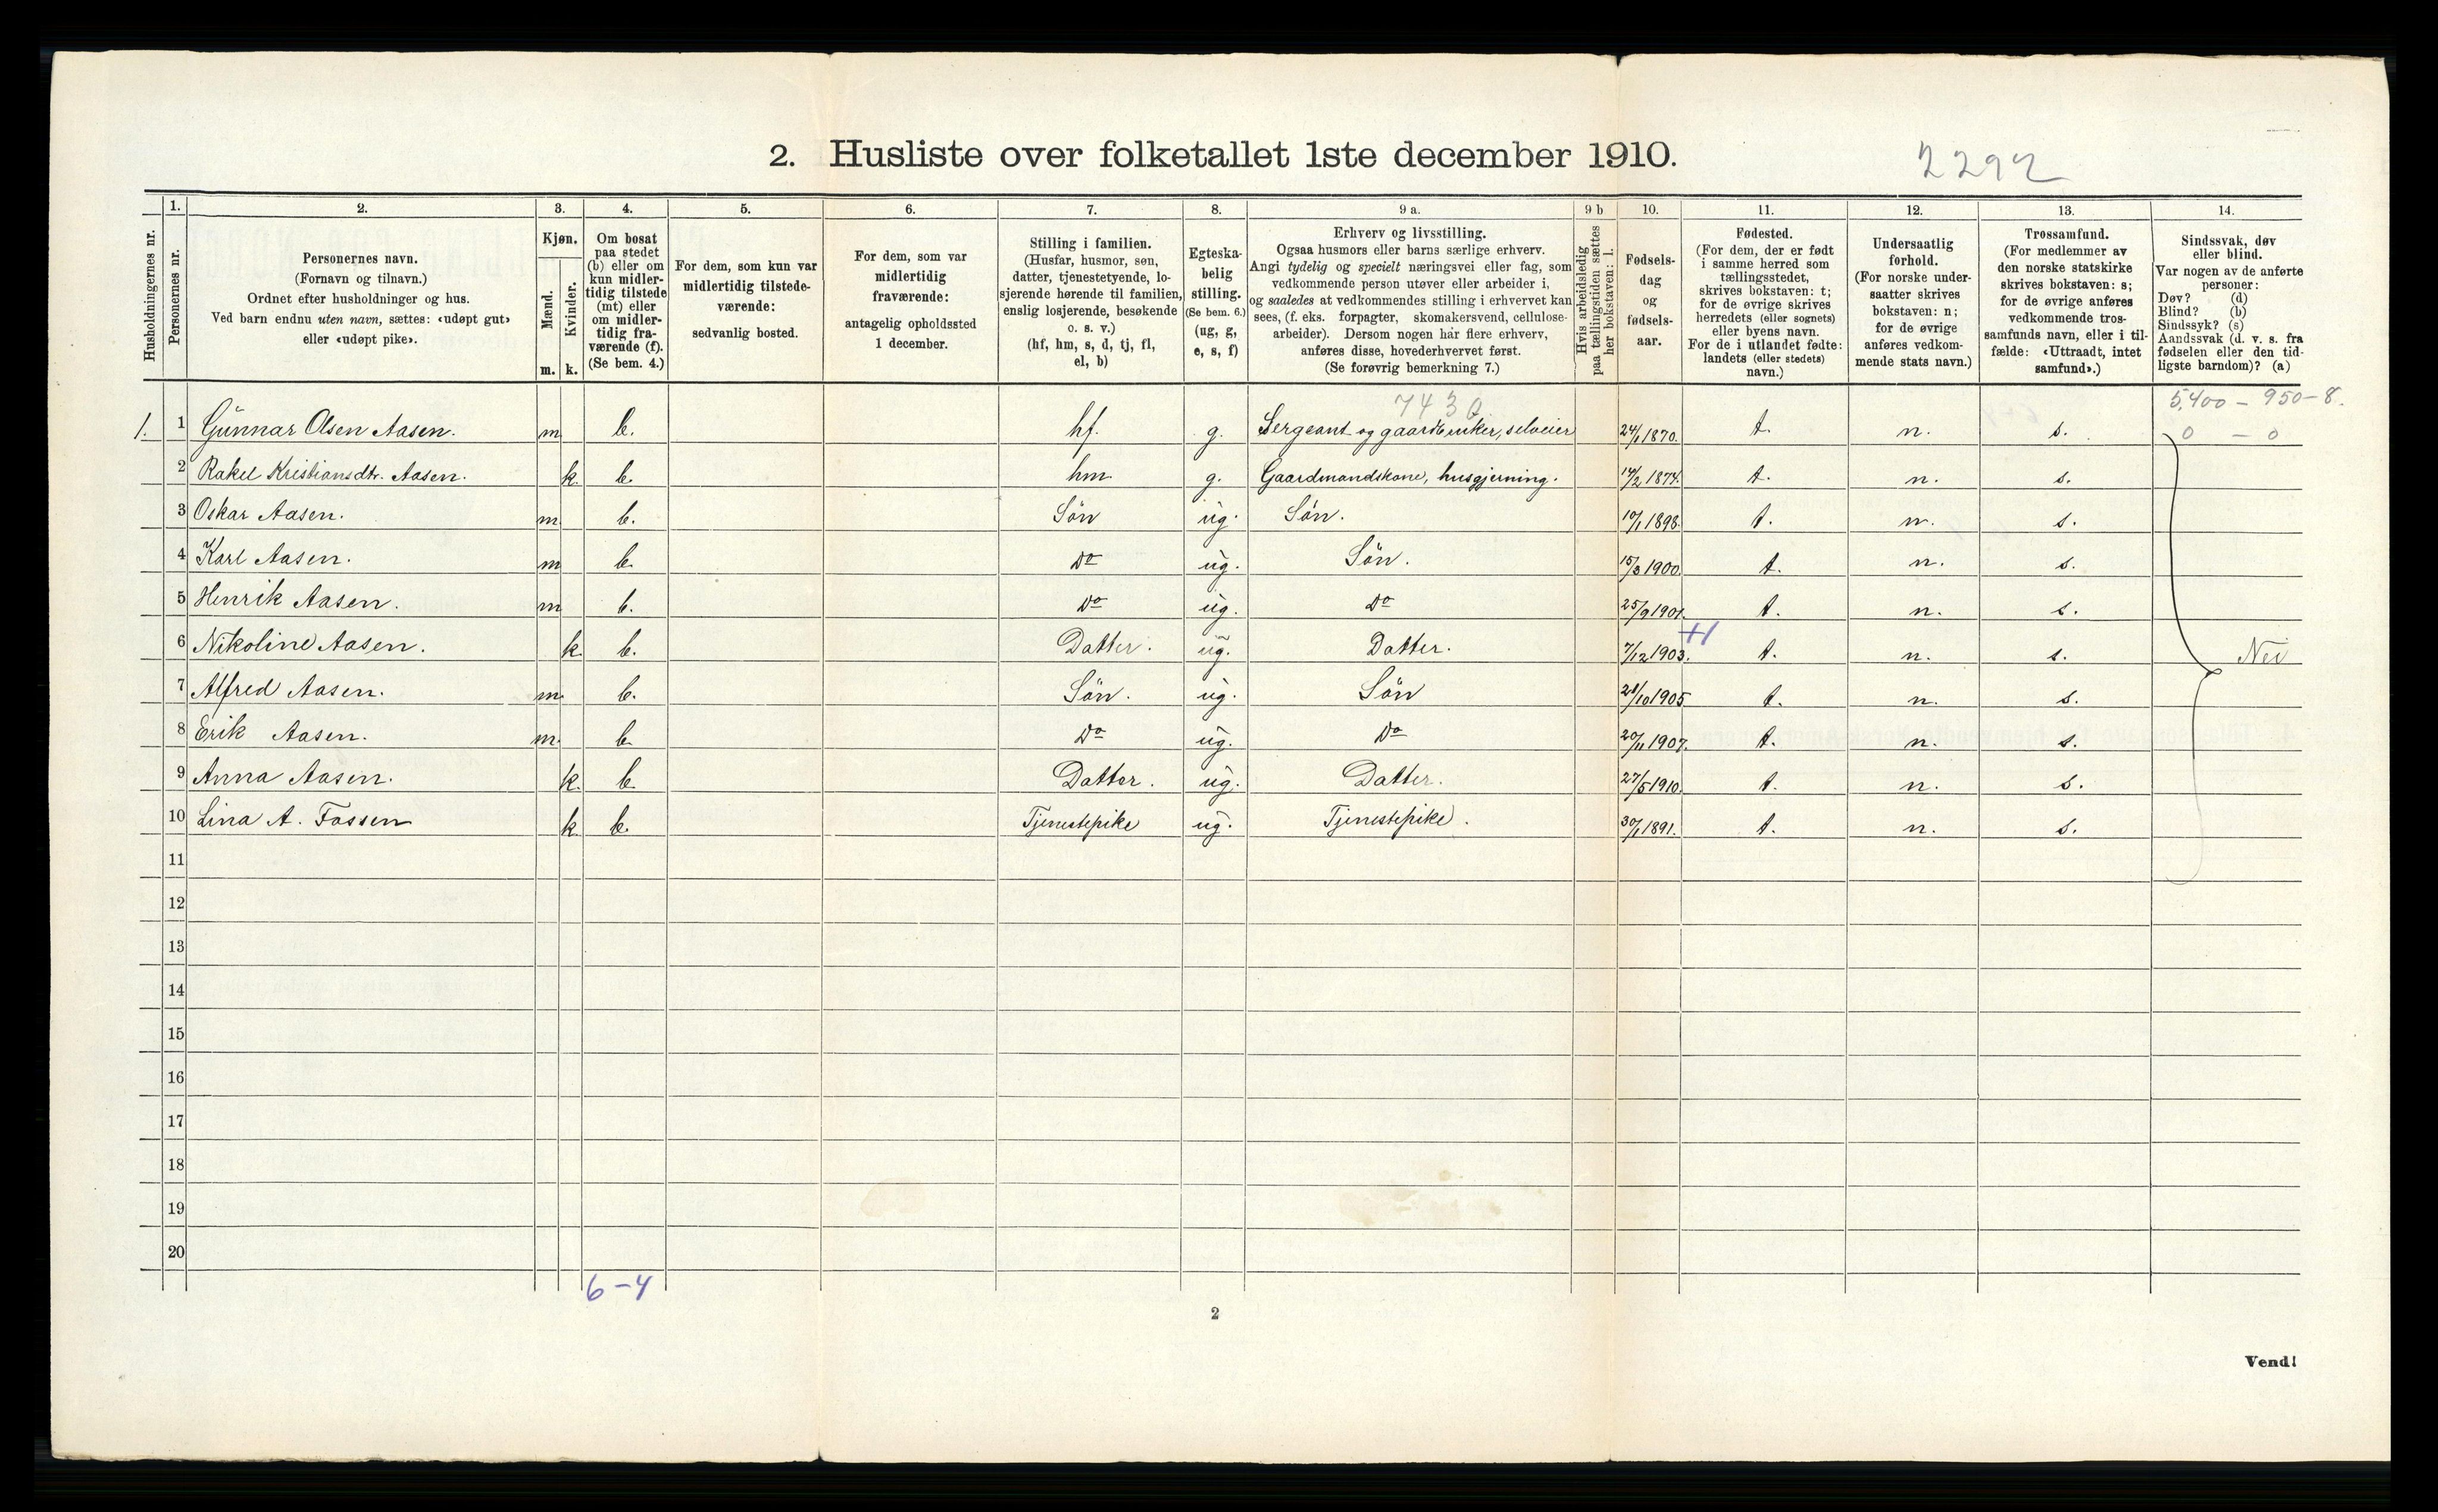 2. Husliste over folketallet 1ste december 1910.
2292
Husholdningernes nr.
1.
Personernes nr.
2.
Personernes navn.
(Fornavn og tilnavn.)
Ordnet efter husholdninger og hus.
Ved barn endnu uten navn, sættes: «udøpt gut»
eller «udøpt pike».
3.
Kjøn.
Mænd.
m.
Kvinder.
k.
4.
Om bosat
paa stedet
(b) eller om
kun midler-
tidig tilstede
(mt) eller
om midler-
tidig fra-
værende (f).
(Se bem. 4.)
5.
For dem, som kun var
midlertidig tilstede-
værende:
sedvanlig bosted.
6.
For dem, som var
midlertidig
fraværende:
antagelig opholdssted
1 december.
7.
Stilling i familien.
(Husfar, husmor, søn,
datter, tjenestetyende, lo-
sjerende hørende til familien,
enslig losjerende, besøkende
o. s. v.)
(hf, hm, s, d, tj, fl,
el, b)
8.
Egteska-
belig
stilling.
(Se bem. 6.)
(ug, g,
e, s, f)
9 a.
Erhverv og livsstilling.
Ogsaa husmors eller barns særlige erhverv.
Angi tydelig og specielt næringsvei eller fag, som
vedkommende person utøver eller arbeider i,
og saaledes at vedkommendes stilling i erhvervet kan
sees, (f. eks. forpagter, skomakersvend, cellulose-
arbeider). Dersom nogen har flere erhverv,
anføres disse, hovederhvervet først.
(Se forøvrig bemerkning 7.)
9 b
Hvis arbeidsledig
paa tællingstiden sættes
her bokstaven: l.
10.
Fødsels-
dag
og
fødsels-
aar.
11.
Fødested.
(For dem, der er født
i samme herred som
tællingsstedet,
skrives bokstaven: t;
for de øvrige skrives
herredets (eller sognets)
eller byens navn.
For de i utlandet fødte:
landets (eller stedets)
navn.)
12.
Undersaatlig
forhold.
(For norske under-
saatter skrives
bokstaven: n;
for de øvrige
anføres vedkom-
mende stats navn.)
13.
Trossamfund.
(For medlemmer av
den norske statskirke
skrives bokstaven: s;
for de øvrige anføres
vedkommende tros-
samfunds navn, eller i til-
fælde: «Uttraadt, intet
samfund».)
14.
Sindssvak, døv
eller blind.
Var nogen av de anførte
personer:
Døv? (d)
Blind? (b)
Sindssyk? (s)
Aandssvak (d. v. s. fra
fødselen eller den tid-
ligste barndom)? (a)
7430
5,400 - 950 - 8.
0 - 0
1. 1 Gunnar Olsen Aasen. m b. hf. g. Sergeant og gaardbruker, selveier 24/1 1870. t. n. s.
2 Rakel Kristiansdtr. Aasen. k. b. hm g. Gaardmandskone, husgjerning. 14/2 1874. t. n. s.
3 Oskar Aasen. m. b. Sön ug. Sön. 10/1 1898. t. n. s.
4 Karl Aasen. m b. Do ug. Sön. 15/3 1900. t. n. s.
5 Henrik Aasen. m b. Do ug. Do 25/9 1901. t. n. s.
6 Nikoline Aasen. k. b. Datter. ug. Datter. 7/12 1903. +1 t. n. s. Nei
7 Alfred Aasen. m. b. Sön. ug. Sön 21/10 1905 t. n. s.
8 Erik Aasen. m. b Do ug. Do 20/11 1907. t. n. s.
9 Anna Aasen. k. b Datter. ug. Datter. 27/5 1910. t. n. s.
10 Lina A. Fossen k. b. Tjenestepike ug. Tjenestepike. 30/1 1891. t. n. s.
11
12
13
14
15
16
17
18
19
20
6-4
2
Vend!